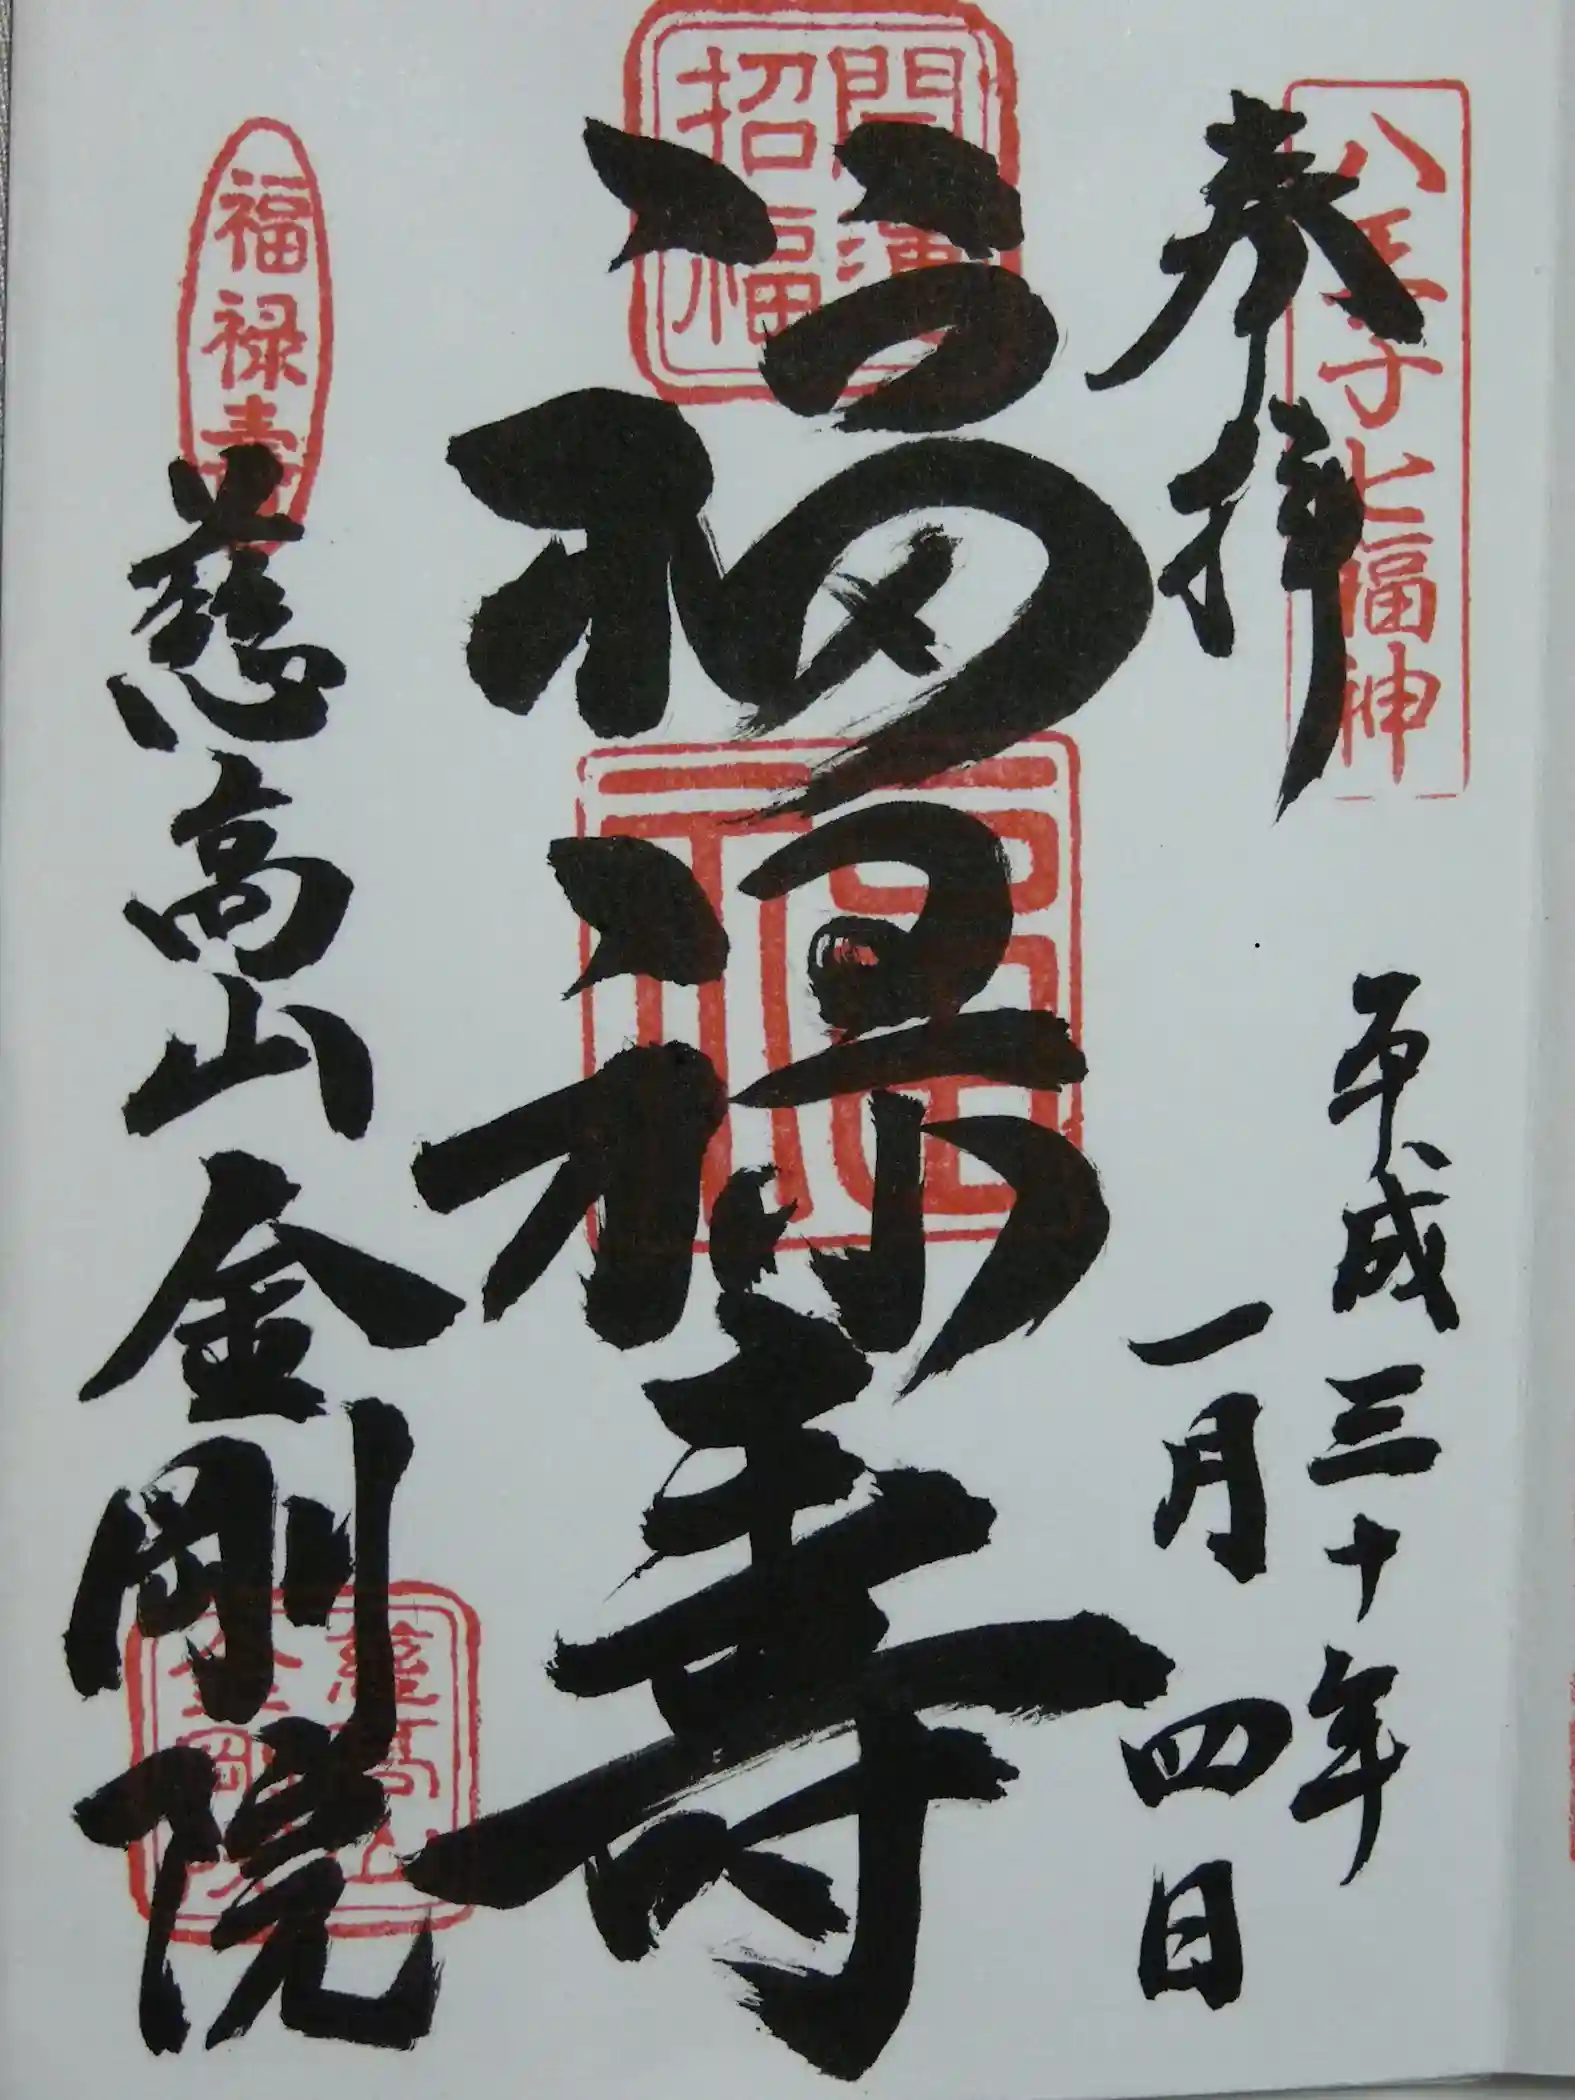 奉拝
八王子七福神
平成三十年
一月四日
開運
招福
福禄寿
福
福禄寿
慈高山金剛院
慈高山
金剛院